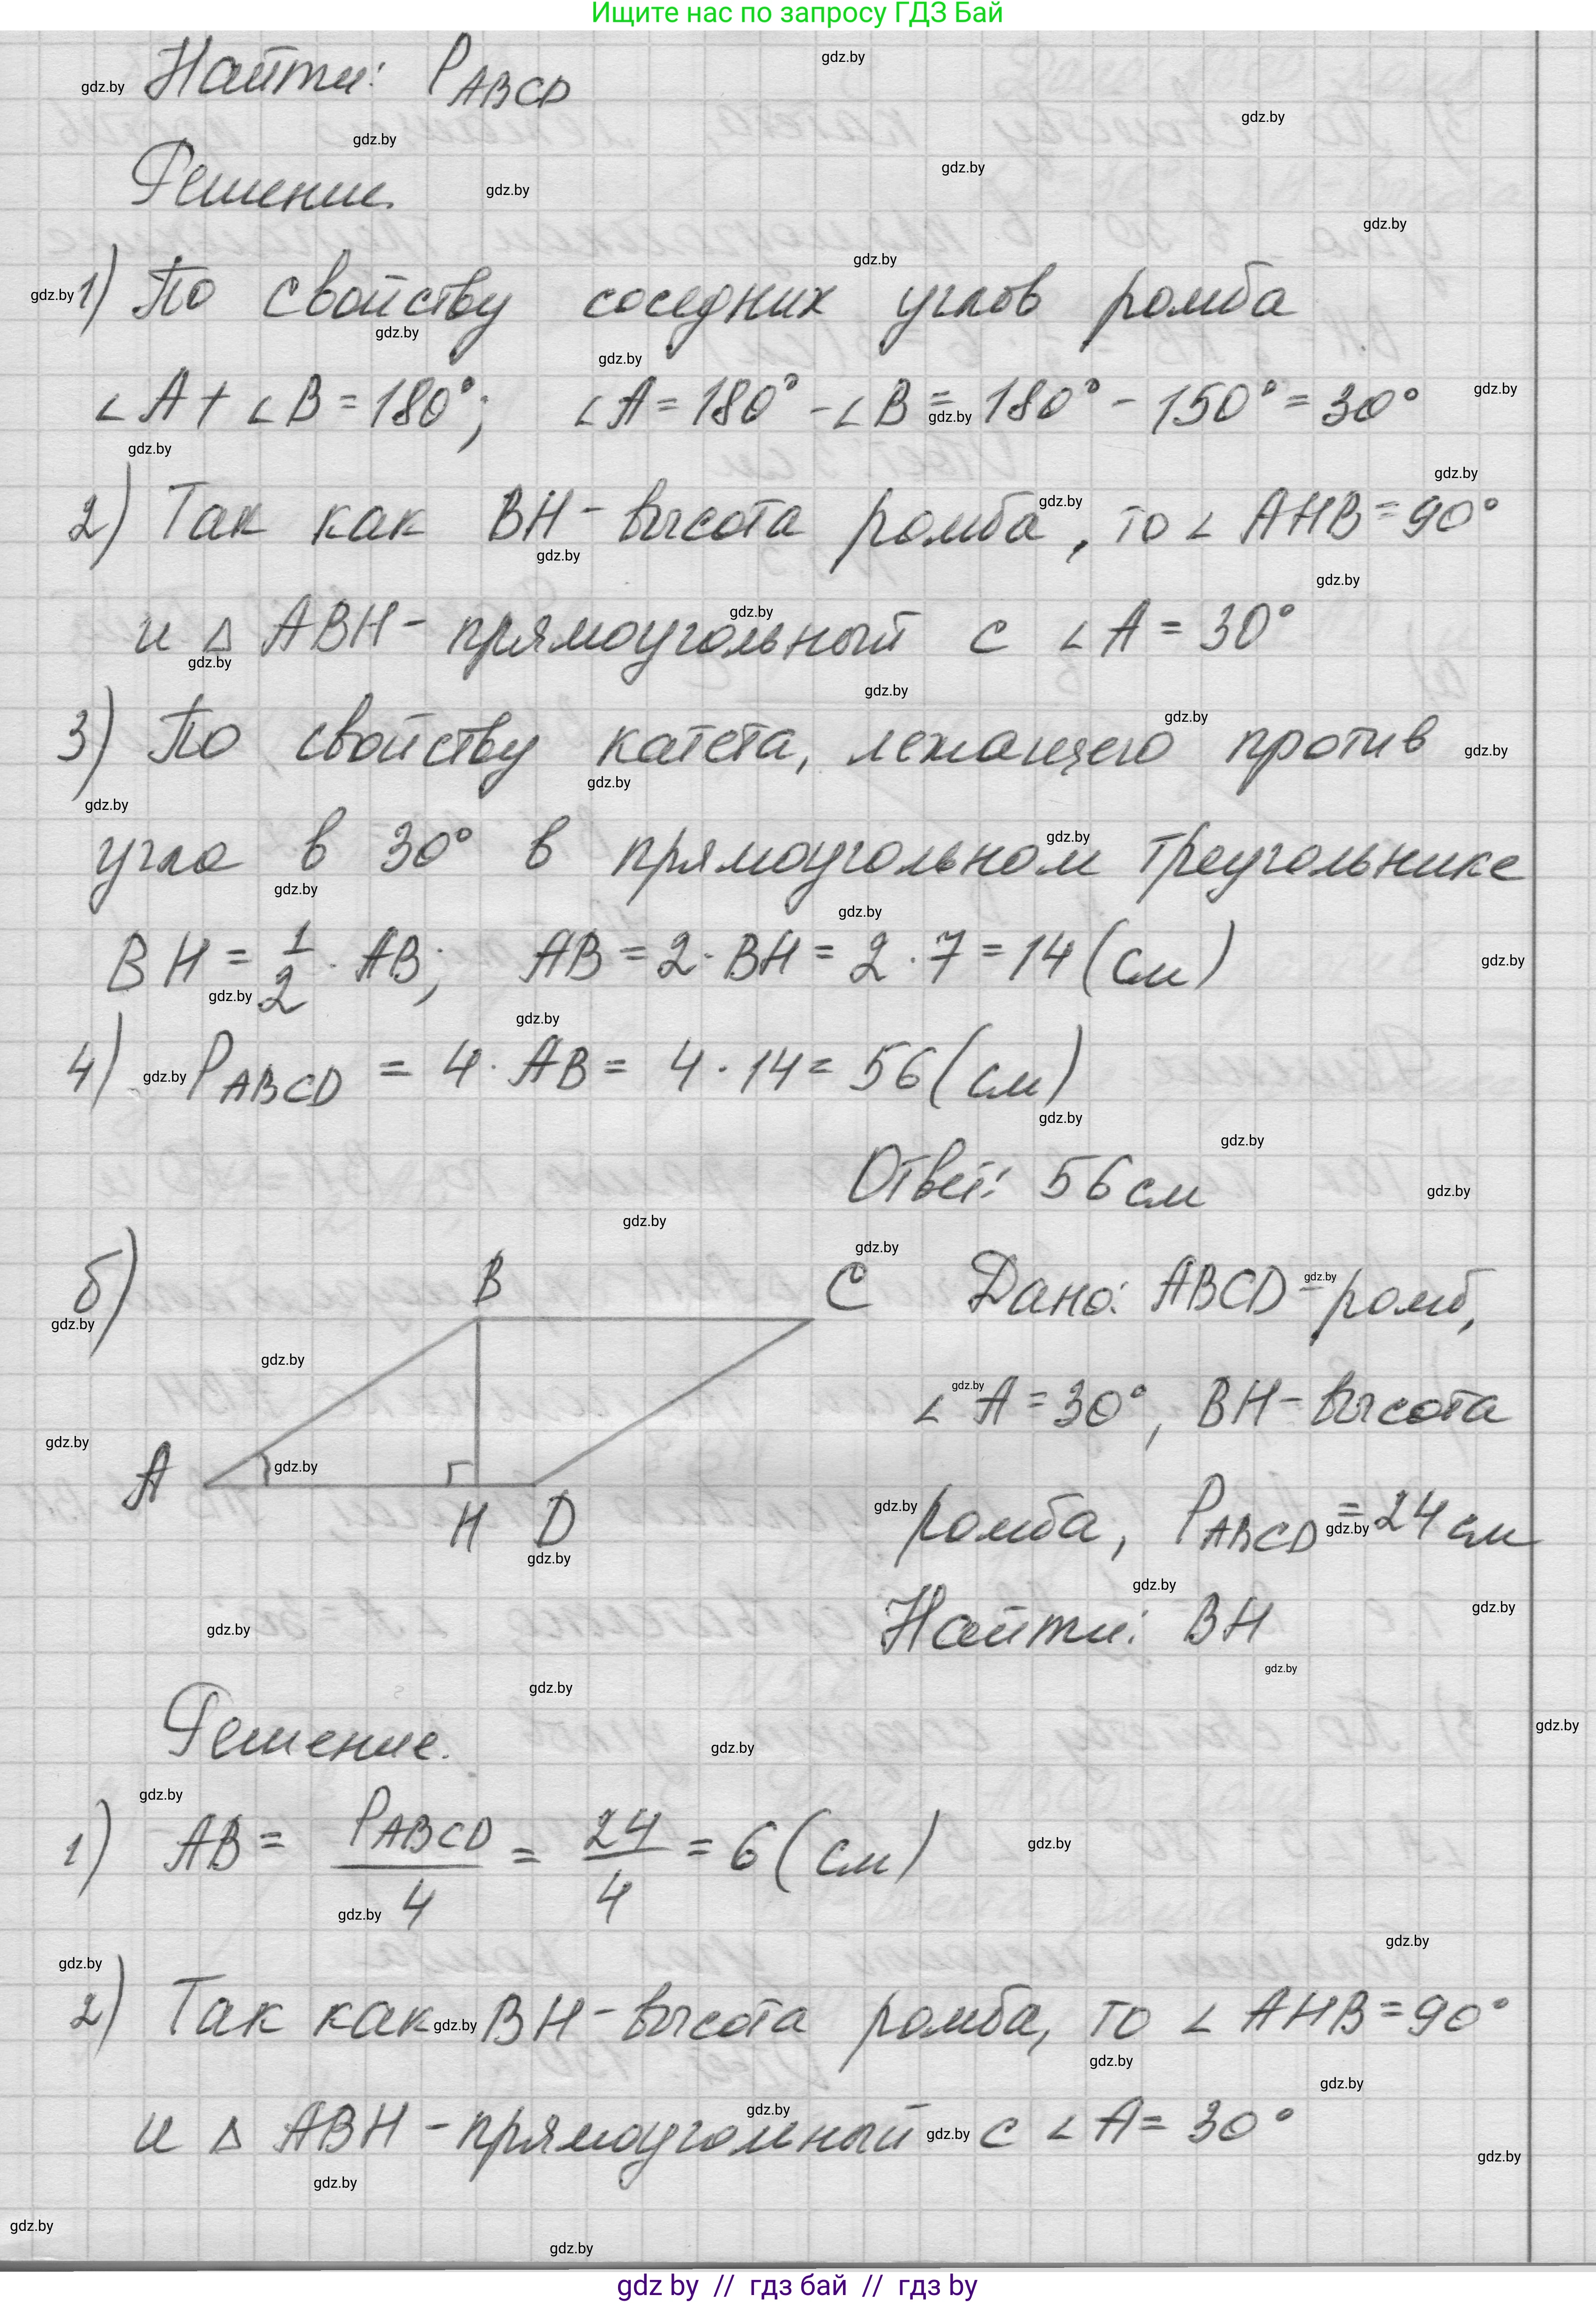 Ищите нас по запросу ГДЗ Бай
Найти: P_ABCD
Решение.
1) По свойству соседних углов ромба
∠A + ∠B = 180°; ∠A = 180° - ∠B = 180° - 150° = 30°
2) Так как BH - высота ромба, то ∠ AHB = 90°
и △ ABH - прямоугольный с ∠A = 30°
3) По свойству катета, лежащего против
угла в 30° в прямоугольном треугольнике
BH = 1/2 · AB; AB = 2 · BH = 2 · 7 = 14 (см)
4) P_ABCD = 4 · AB = 4 · 14 = 56 (см)
Ответ: 56 см
б)
B
C
A
H
D
Дано: ABCD - ромб,
∠A = 30°, BH - высота
ромба, P_ABCD = 24 см
Найти: BH
Решение.
1) AB = P_ABCD/4 = 24/4 = 6 (см)
2) Так как BH - высота ромба, то ∠ AHB = 90°
и △ ABH - прямоугольный с ∠A = 30°
gdz by // гдз бай // гдз by